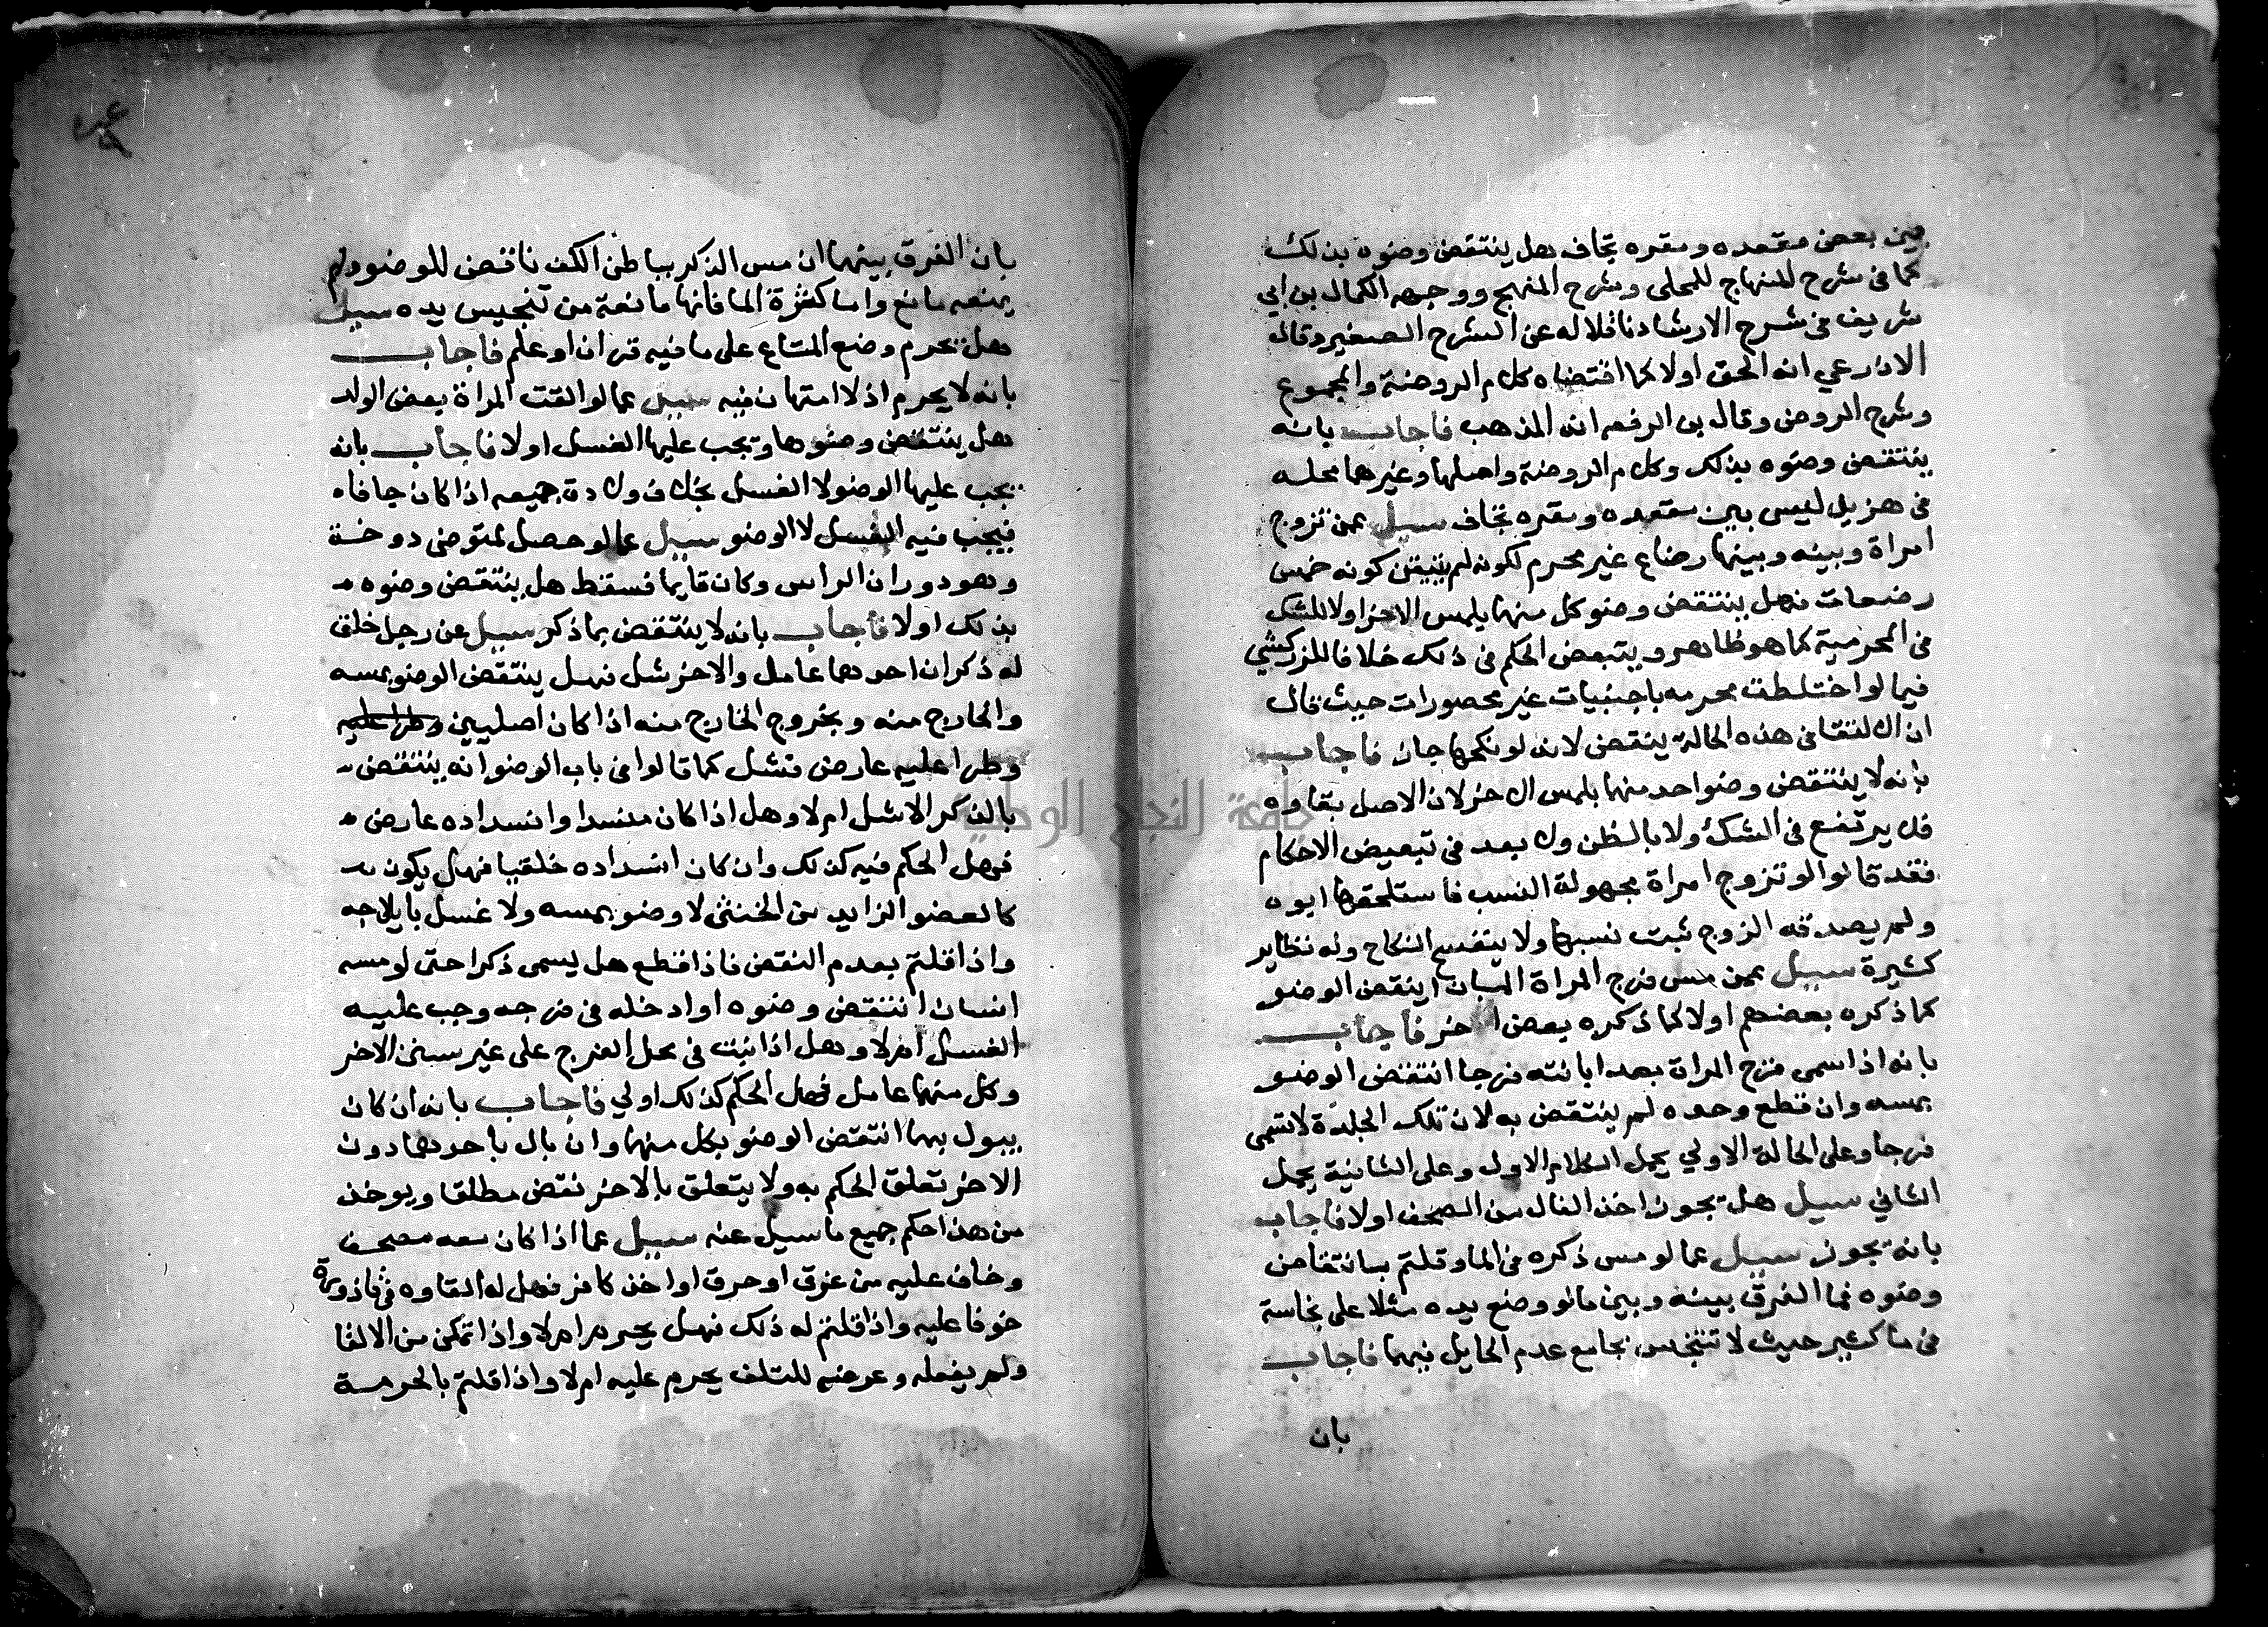 بين بعض مقعده ومقره تجاف هل ينتقض وضوه بذلك
كما في شرح المنهاج للمحلي وشرح المنهج ووجهه الكمال بن ابي
شريف في شرح الارشاد ناقلا له عن الشرح الصغير وقال
الاذرعي انه الحق اولا كما اقتضاه كلام الروضة والمجموع
وشرح الروض وقال بن الرفعه انه المذهب فاجاب بانه
ينتقض وضوه بذلك وكلام الروضة واصلها وغيرهما محله
في هزيل ليس بين مقعده ومقره تجاف سيل عمن تزوج
امراة وبينه وبينها رضاع غير محرم لكونه لم يتيقن كونه خمس
رضعات فهل ينتقض وضو كل منهما بلمس الاخر اولا للشك
في المحرمية كما هو ظاهر ويتبعض الحكم في ذلك خلافا للزركشي
فيما لو اختلطت محرمه باجنبيات غير محصورات حيث قال
ان الالتقا في هذه الحالة ينقض لانه لو نكحها جاز فاجاب
بانه لا ينتقض وضو احد منهما بلمس الاخر لان الاصل بقاوه
فلا يرتفع في الشك ولا بالظن ولا بعد في تبعيض الاحكام
فقد قالوا لو تزوج امراة مجهولة النسب فاستلحقها ابوه
ولم يصدقه الزوج ثبت نسبها ولا ينفسخ النكاح وله نظاير
كثيرة سيل عمن مس فرج المراة المبان اينقض الوضو
كما ذكره بعضهم اولا كما ذكره بعض اخر فاجاب
بانه اذا سمى فرج المراة بعد ابانته فرجا انتقض الوضو
بمسه وان قطع وحده لم ينتقض به لان تلك الجلدة لا تسمى
فرجا وعلى الحالة الاولي يحمل الكلام الاول وعلى الثانية يحمل
الثاني سيل هل يجوز اخذ الفال من المصحف اولا فاجاب
بانه يجوز سيل عما لو مس ذكره في الما وقلتم بانتقاض
وضوه فما الفرق بينه وبين ما لو وضع يده مثلا على نجاسة
في ما كثير حيث لا تتنجس بجامع عدم الحايل فيهما فاجاب
بان
بان الفرق بينهما ان مس الذكر بباطن الكف ناقض للوضو ولم
يمنعه مانع واما كثرة الما فانها مانعة من تنجيس يده سيل
هل يحرم وضع المتاع على ما فيه قران او علم فاجاب
بانه لا يحرم اذ لا امتهان فيه سيل عما لو القت المراة بعض الولد
هل ينتقض وضوها ويجب عليها الغسل اولا فاجاب بانه
يجب عليها الوضو لا الغسل بخلاف ولادة جميعه اذا كان جافا
فيجب فيه الغسل لا الوضو سيل عما لو حصل لمتوضي دوخة
وهو دوران الراس وكان قايما فسقط هل ينتقض وضوه
بذلك اولا فاجاب بانه لا ينتقض بما ذكر سيل عن رجل خلق
له ذكران احدهما عامل والاخر شل فهل ينتقض الوضو بمسه
والخارج منه وبخروج الخارج منه اذا كان اصليين وطرا عليه
وطرا عليه عارض فشل كما قالوا في باب الوضو انه ينتقض
بالذكر الاشل ام لا وهل اذا كان منسدا وانسداده عارض
فهل الحكم فيه كذلك وان كان انسداده خلقيا فهل يكون
كالعضو الزايد من الخنثى لا وضو بمسه ولا غسل بايلاجه
واذا قلتم بعدم النقض فاذا قطع هل يسمى ذكرا حتى لو مسه
انسان انتقض وضوه او ادخله في فرجه وجب عليه
الغسل ام لا وهل اذا نبت في محل الفرج على غير سنن الاخر
وكل منهما عامل فهل الحكم كذلك اولي فاجاب بانه ان كان
يبول بهما انتقض الوضو بكل منهما وان بال باحدهما دون
الاخر تعلق الحكم به ولا يتعلق بالاخر نقض مطلقا ويوخذ
من هذا حكم جميع ما سيل عنه سيل عما اذا كان معه مصحف
وخاف عليه من غرق او حرق او اخذ كافر فهل له القاوه في قاذورة
خوفا عليه واذا قلتم له ذلك فهل يحرم ام لا واذا تمكن من الالقا
ولم يفعله وعرضه للتلف يحرم عليه ام لا واذا قلتم بالحرمة
جامعة النجاح الوطنية